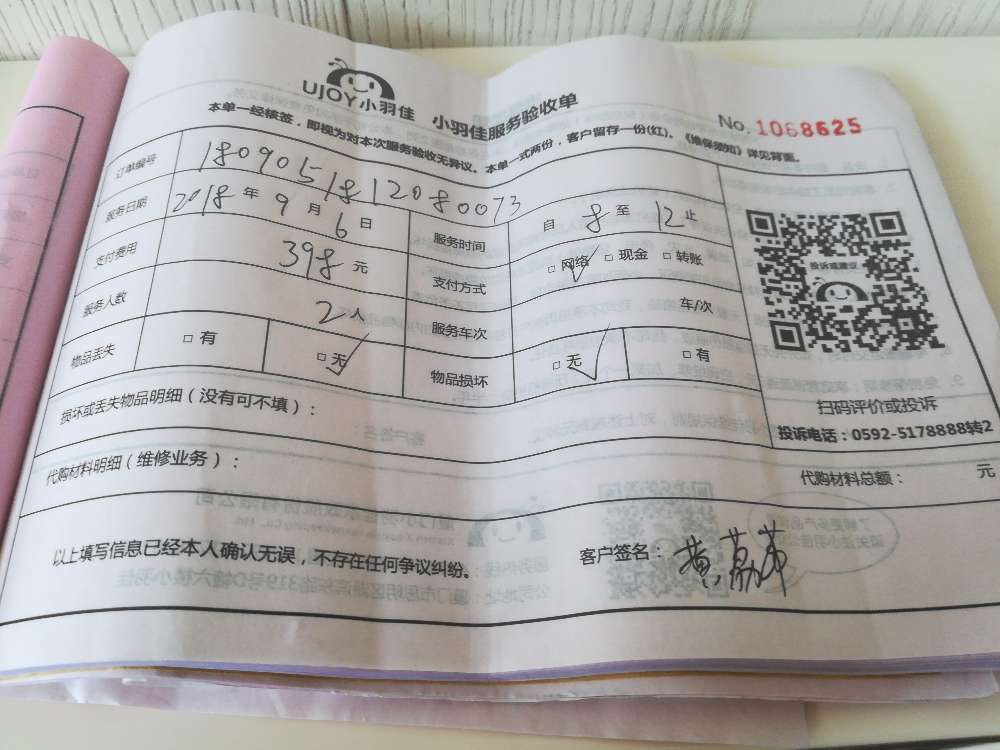 UJOY小羽佳 小羽佳服务验收单
No. 1068625
本单一经核签，即视为对本次服务验收无异议。本单一式两份，客户留存一份(红)。《维保须知》详见背面。
订单编号 1809051812080073
服务日期 2018年9月6日 服务时间 自8至12止
支付费用 398元 支付方式 □网络 □现金 □转账
服务人数 2人 服务车次 车/次
物品丢失 □有 □无 物品损坏 □无 □有
投诉或建议
扫码评价或投诉
投诉电话：0592-5178888转2
损坏或丢失物品明细（没有可不填）：
代购材料明细（维修业务）： 代购材料总额： 元
以上填写信息已经本人确认无误，不存在任何争议纠纷。 客户签名：黄荔